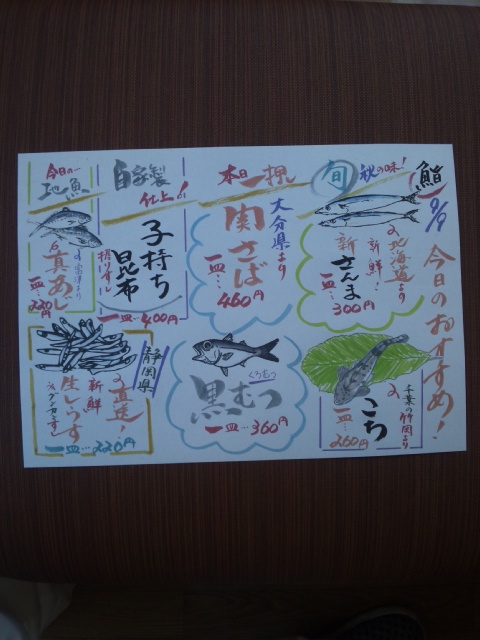 鮨
9/9
今日のおすすめ!
旬
秋の味!
北海道より
新鮮!
新さんま
一皿…300円
本日一押し
大分県より
関さば
一皿…460円
自家製
仕上!
子持ち
昆布
握りずし
一皿…400円
今日の
地魚
真あじ
千葉の竹岡より
こち
一皿…260円
くろむつ
黒むつ
一皿…360円
静岡県
直送!
新鮮
生しらす
※グンカンずし
一皿…220円